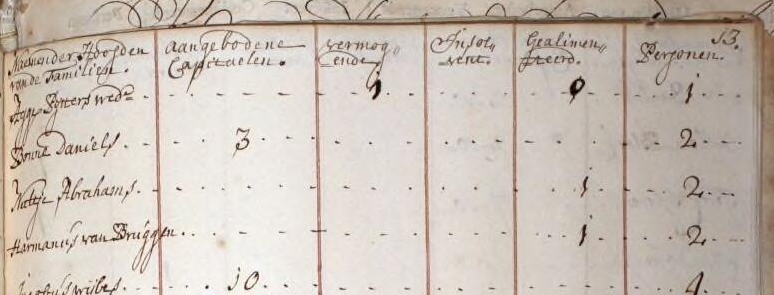 13.
Naemen der Hoofden van de Familien. aangebodene Capitaelen. vermog- ende Insol- vent. Gealimen- teerd. Personen.
Pytters wede 1 0 1
Bonne Daniels 3 2
Abrahams 1 2
Harmanus van Bruggen 1 2
wijbes 10 4